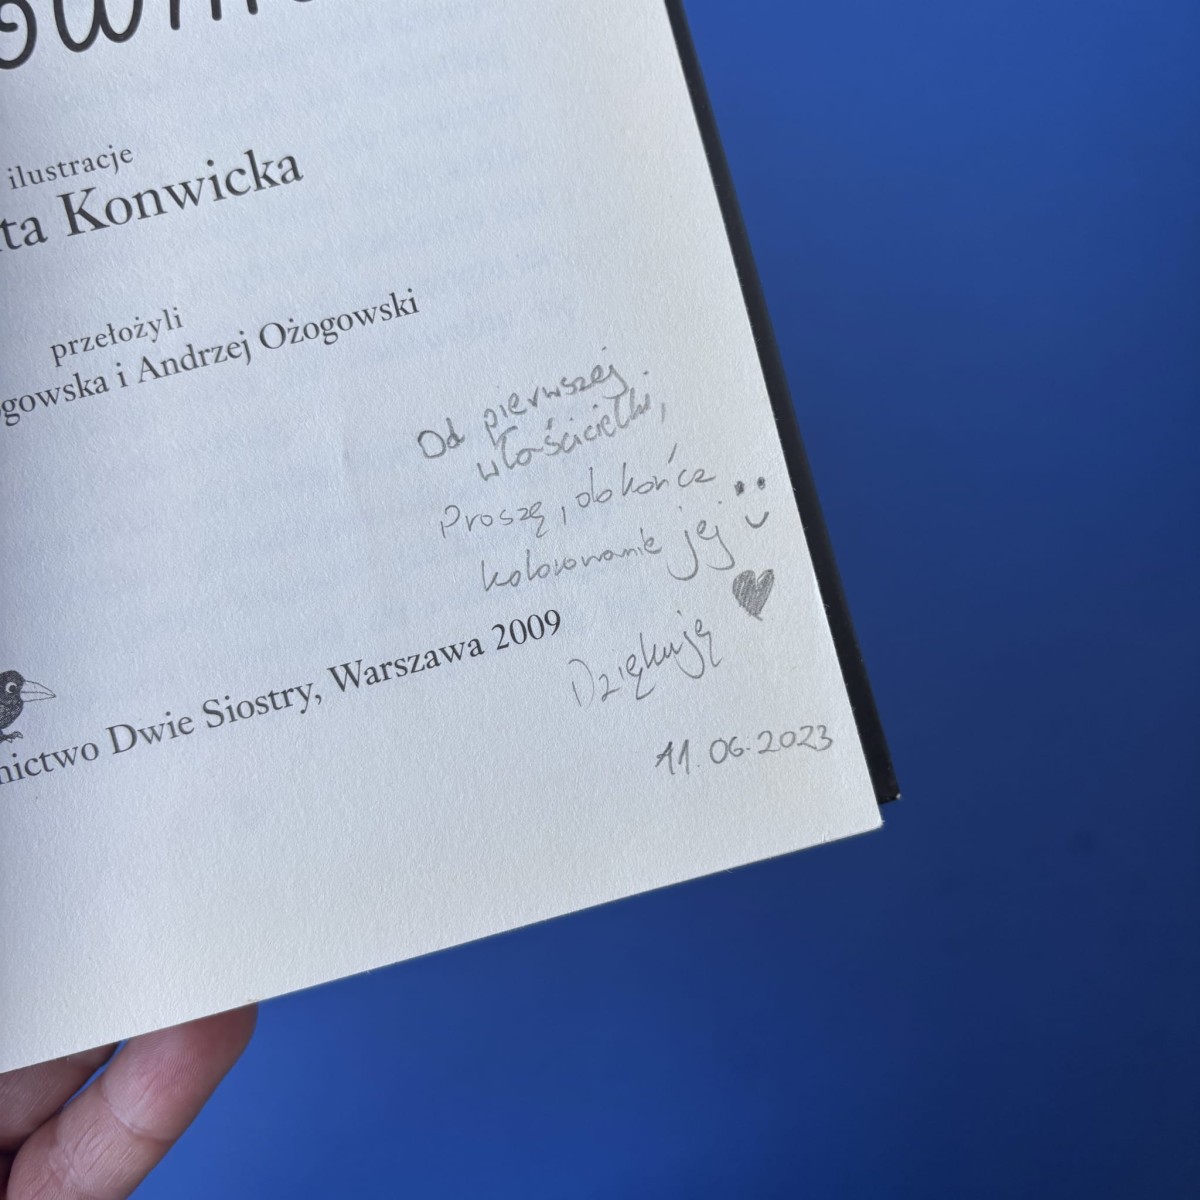 ilustracje
ta Konwicka
przełożyli
gowska i Andrzej Ożogowski
Od pierwszej
właścicielki,
Proszę, dokończ
kolorowanie jej
Dziękuję
nictwo Dwie Siostry, Warszawa 2009
11.06.2023